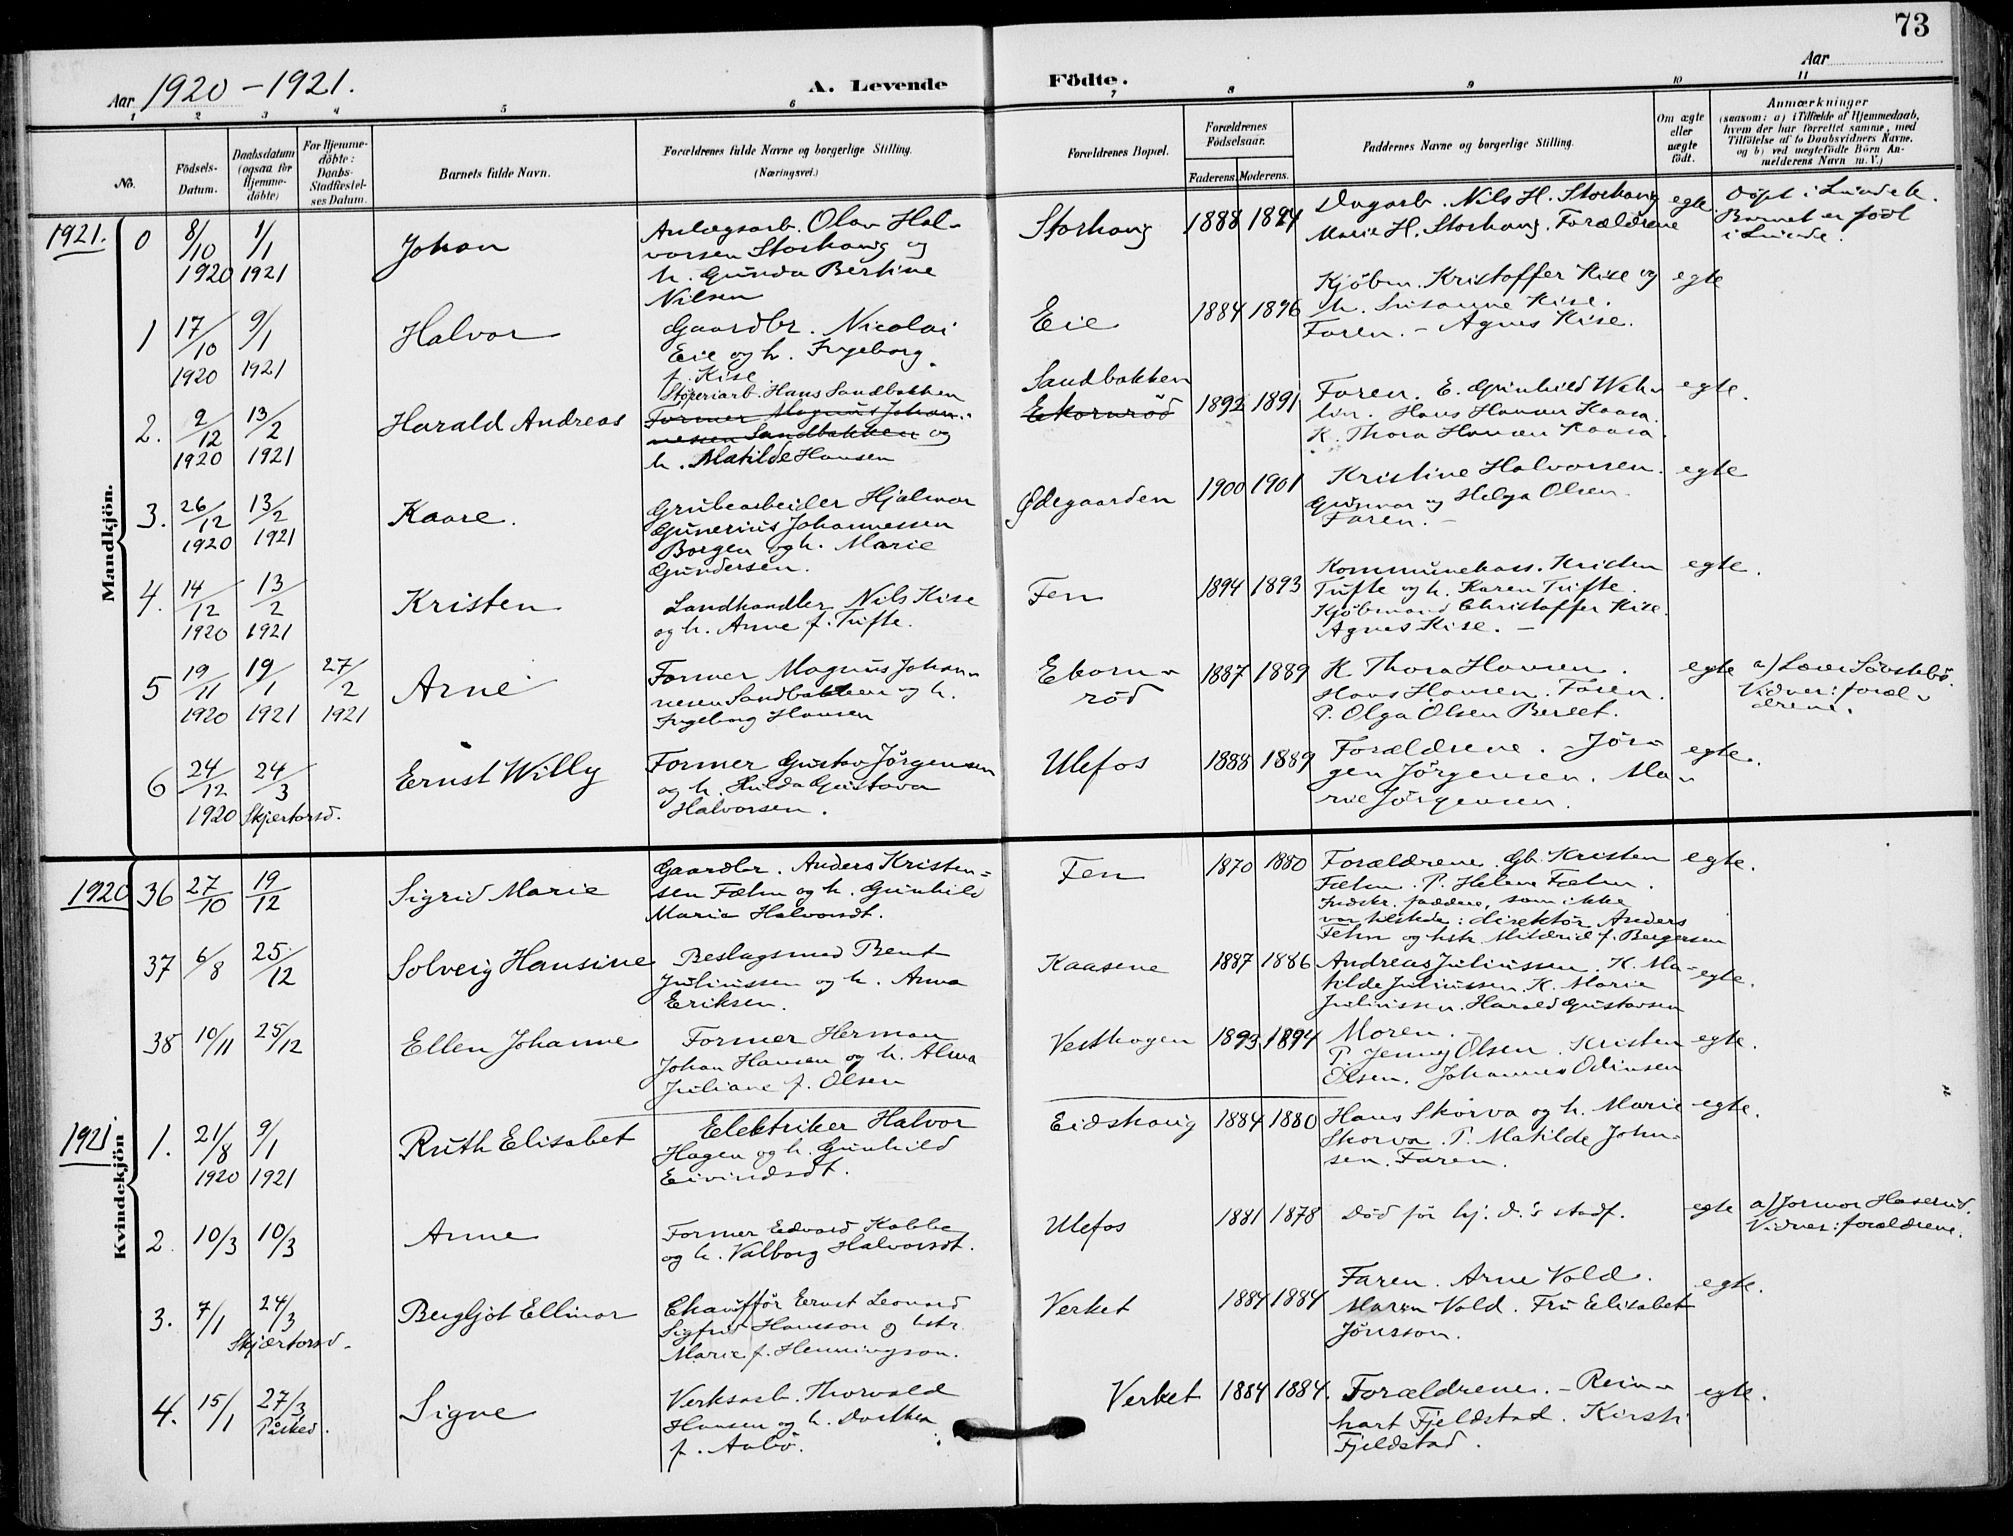 73
Aar 1920-1921.
A. Levende Födte.
Aar
1 2 3 4 5 6 7 8 9 10 11
No.
Födsels-Datum.
Daabsdatum (ogsaa for Hjemme-döbte)
For Hjemme-döbte: Daabs-Stadfæstel-ses Datum.
Barnets fulde Navn.
Forældrenes fulde Navne og borgerlige Stilling.
(Næringsvei.)
Forældrenes Bopæl.
Forældrenes Födselsaar.
Faderens. Moderens.
Faddernes Navne og borgerlige Stilling.
Om ægte eller uægte födt.
Anmærkninger
(saasom: a) i Tilfælde af Hjemmedaab,
hvem der har forrettet samme, med
Tilföielse af to Daabsvidners Navne,
og b) ved uegtefödte Börn An-
melderens Navn m. V.)
Mandkjön.
1921. 0 8/10 1920 1/1 1921 Johan
Anlægsarb. Olav Hal-
vorsen Storhaug og
h. Gunda Bertine
Nilsen
Storhaug 1888 1894
Dagarb. Nils H. Storhaug
Marie H. Storhaug. Forældrene
egte.
Döpt i Lunde k.
Barnet er födt
i Lunde.
1 17/10 1920 9/1 1921 Halvor
Gaardbr. Nicolai
Eie og h. Ingeborg
f. Kise
Eie 1884 1896
Kjöbm. Kristoffer Kise og
h. Susanne Kise.
Faren. - Agnes Kise.
egte
2. 2/12 1920 13/2 1921 Harald Andreas
Støperiarb. Hans Sandbakken
Former Magnus Johan-
nesen Sandbakken og
h. Matilde Hansen
Sandbakken
Ekornröd 1892 1891
Faren. E. Gunhild Weh-
lin. Hans Hansen Kaasa.
K. Thora Hansen Kaasa.
egte.
3. 26/12 1920 13/2 1921 Kaare.
Grubearbeider Hjalmar
Gunerius Johannessen
Borgen og h. Marie
Gundersen.
Ødegaarden 1900 1901
Kristine Halvorsen.
Gunnar og Helga Olsen.
Faren. -
egte
4. 14/12 1920 13/2 1921 Kristen
Landhandler Nils Kise
og h. Anne f. Tufte.
Fen 1894 1893
Kommunekass. Kristen
Tufte og h. Karen Tufte.
Kjöbmand Christoffer Kise.
Agnes Kise. -
egte.
5 19/11 1920 19/1 1921 27/2 1921 Arne
Former Magnus Johan-
nesen Sandbakken og h.
Ingeborg Hansen
Ekorn-
röd 1887 1889
K. Thora Hansen.
Hans Hansen. Faren.
P. Olga Olsen Berget.
egte
a) Lærer Sövstebö.
Vidner: foræl-
drene.
6 24/12 1920 24/3 Skjærtorsd. Ernst Willy
Former Gustav Jörgensen
og h. Hulda Gustava
Halvorsen.
Ulefos 1888 1889
Forældrene. Jör-
gen Jörgensen. Ma-
rie Jörgensen.
egte.
Kvindekjön
1920 36 27/10 19/12 Sigrid Marie
Gaardbr. Anders Kristen-
sen Fæhn og h. Gunhild
Marie Halvorsdt.
Fen 1870 1880
Forældrene. Gb. Kristen
Fæhn. P. Helene Fæhn.
Indskr. faddere, som ikke
var tilstede: direktör Anders
Fehn og hstr. Mildrid f. Bergersen
egte.
37 6/8 25/12 Solveig Hansine
Beslagsmed Bent
Juliussen og h. Anna
Eriksen.
Kaasene 1887 1886
Andreas Juliussen. K. Ma-
tilde Juliussen. K. Marie
Juliussen. Harald Gustavsen
egte.
38 10/11 25/12 Ellen Johanne
Former Herman
Johan Hansen og h. Alma
Juliane f. Olsen
Vesthagen 1893 1894
Moren. -
P. Jenny Olsen. Kristen
Olsen. Johannes Odinsen
egte.
1921. 1. 21/8 1920 9/1 1921 Ruth Elisabet
Elektriker Halvor
Hagen og h. Gunhild
Eivindsdt.
Eidshaug 1884 1880
Hans Skorva og h. Marie
Skorva. P. Matilde John-
sen. Faren.
egte.
2. 10/3 10/3 Anne
Former Edvard Kabbe
og h. Valborg Halvorsdt.
Ulefos 1881 1878
Död för hj. d.s stadf.
egte
a) Jormor Haserud.
Vidner: forældrene.
3. 7/1 24/3 Skjærtorsd. Bergljot Ellinor
Chaufför Ernst Leonard
Sigfrid Hansson og hstr.
Marie f. Henningson.
Verket 1884 1884
Faren. Arne Vold.
Maren Vold. Fru Elisabet
Jönsson.
egte.
4. 15/1 27/3 Påsked. Signe
Verksarb. Thorvald
Hansen og h. Dorthea
f. Aabö.
Verket 1884 1884.
Forældrene. - Rein-
hart Fjeldstad. Kirsti
Fjeldstad.
egte.